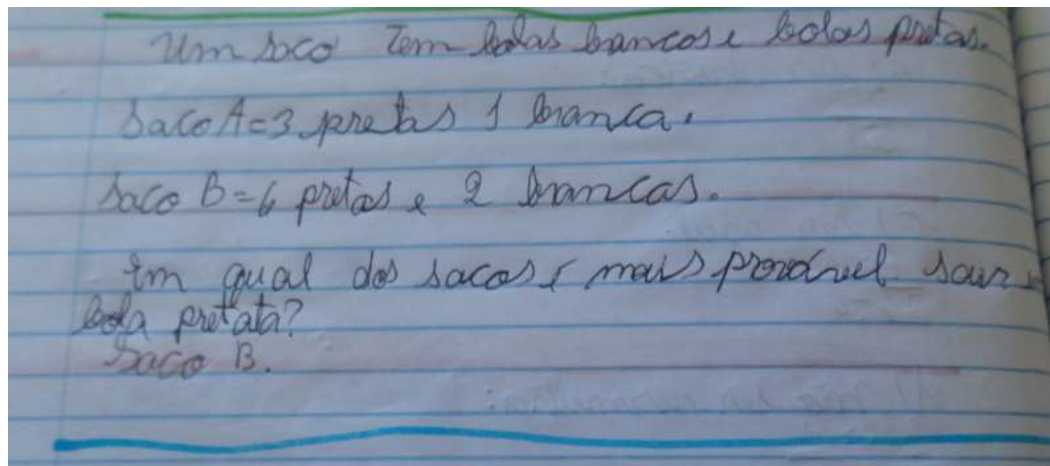 Um saco tem bolas brancas e bolas pretas.
Saco A=3 pretas 1 branca.
Saco B=6 pretas e 2 brancas.
Em qual dos sacos é mais provável sair
bola pretata?
Saco B.